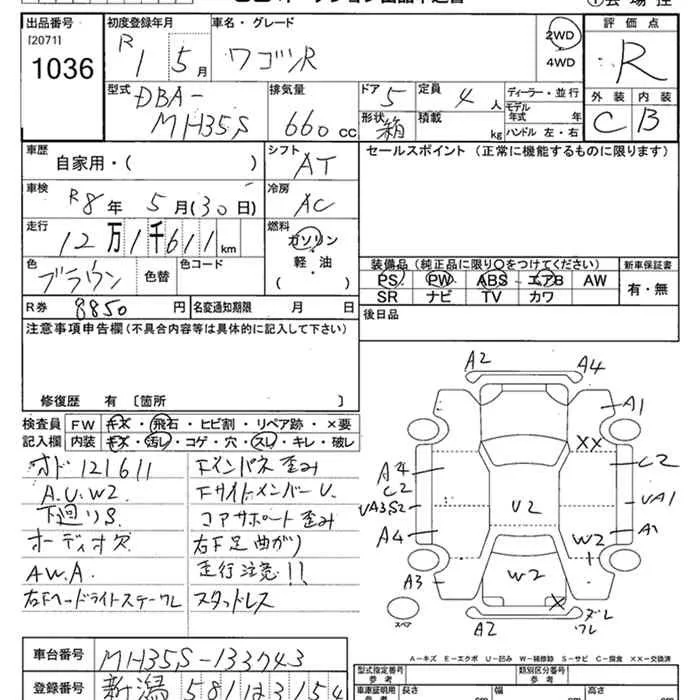 出品番号 初度登録年月 車名・グレード 2WD 評価点
[2071] R 1 5月 ワゴンR 4WD R
1036
型式 排気量 ドア 定員 ディーラー・並行 外装 内装
DBA- 5 4人 モデル年式 年 C B
MH35S 660cc 形状 箱 積載 kg ハンドル 左・右
車歴 シフト セールスポイント (正常に機能するものに限ります)
自家用・( ) AT
車検 冷房
R8年 5月(30日) AC
走行 燃料
12万1千611km ガソリン
軽・油
( )
色 色替 色コード 装備品 (純正品に限り○をつけてください) 新車保証書
ブラウン PS PW ABS エアB AW 有・無
SR ナビ TV カワ
R券 8850円 名変通知期限 月 日 後日品
注意事項申告欄(不具合内容等は具体的に記入して下さい)
修復歴 有 〔箇所 〕
検査員 FW キズ・飛石・ヒビ割・リペア跡・×要
記入欄 内装 キズ・汚レ・コゲ・穴・スレ・キレ・破レ
オド121611 Fインパネ歪み
A.U.W2 FサイドメンバーU.
下廻りS. コアサポート歪み
オーディオ欠 右F足曲がり
AW.A. 走行注意!!
右Fヘッドライトステーワレ スタッドレス
A2 A4
A1
XX
A4 C2
C2
VA3S2 U2 VA1
A4 W2 A1
A3 W2
X ズレ
A2 ワレ
スペア
A-キズ E-エクボ U-凹み W-補修跡 S-サビ C-腐食 XX-交換済
車台番号 MH35S-133743 型式指定番号 参考 類別区分番号 参考
登録番号 新潟 581 車庫証明用 参考 長さ cm 幅 cm 高さ cm